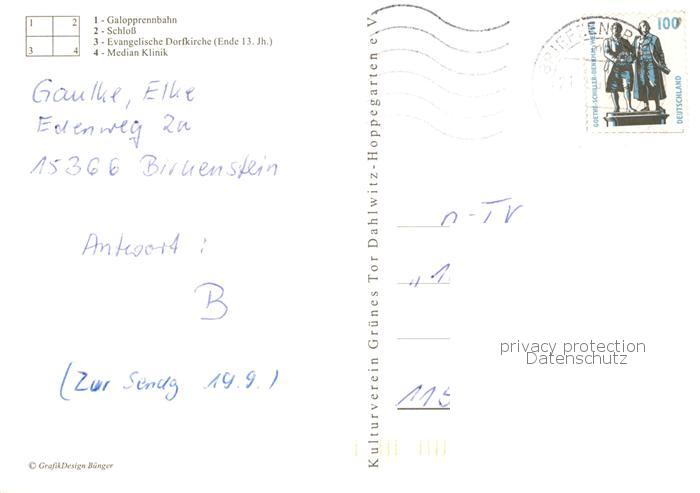 1 2
3 4
1 - Galopprennbahn
2 - Schloß
3 - Evangelische Dorfkirche (Ende 13. Jh.)
4 - Median Klinik
Gaulke, Elke
Edenweg 2a
15366 Birkenstein
Antwort :
B
(Zur Sendg 19.9.)
© GrafikDesign Bünger
Kulturverein Grünes Tor Dahlwitz-Hoppegarten e.V.
100
GOETHE-SCHILLER-DENKMAL WEIMAR
DEUTSCHLAND
n-TV
privacy protection
Datenschutz